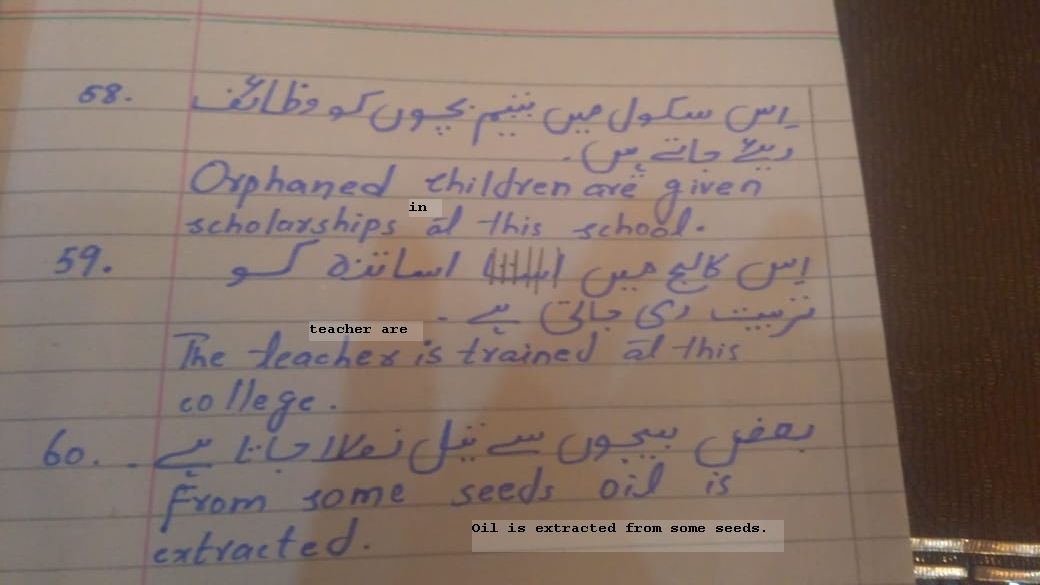 58. اِس سکول میں یتیم بچوں کو وظائف
دیئے جاتے ہیں.
Orphaned children are given
in
scholarships at this school.
59. اِس کالج میں اساتذہ کو
تربیت دی جاتی ہے.
teacher are
The teacher is trained at this
college.
60. بعض بیجوں سے تیل نکالا جاتا ہے.
From some seeds oil is
Oil is extracted from some seeds.
extracted.